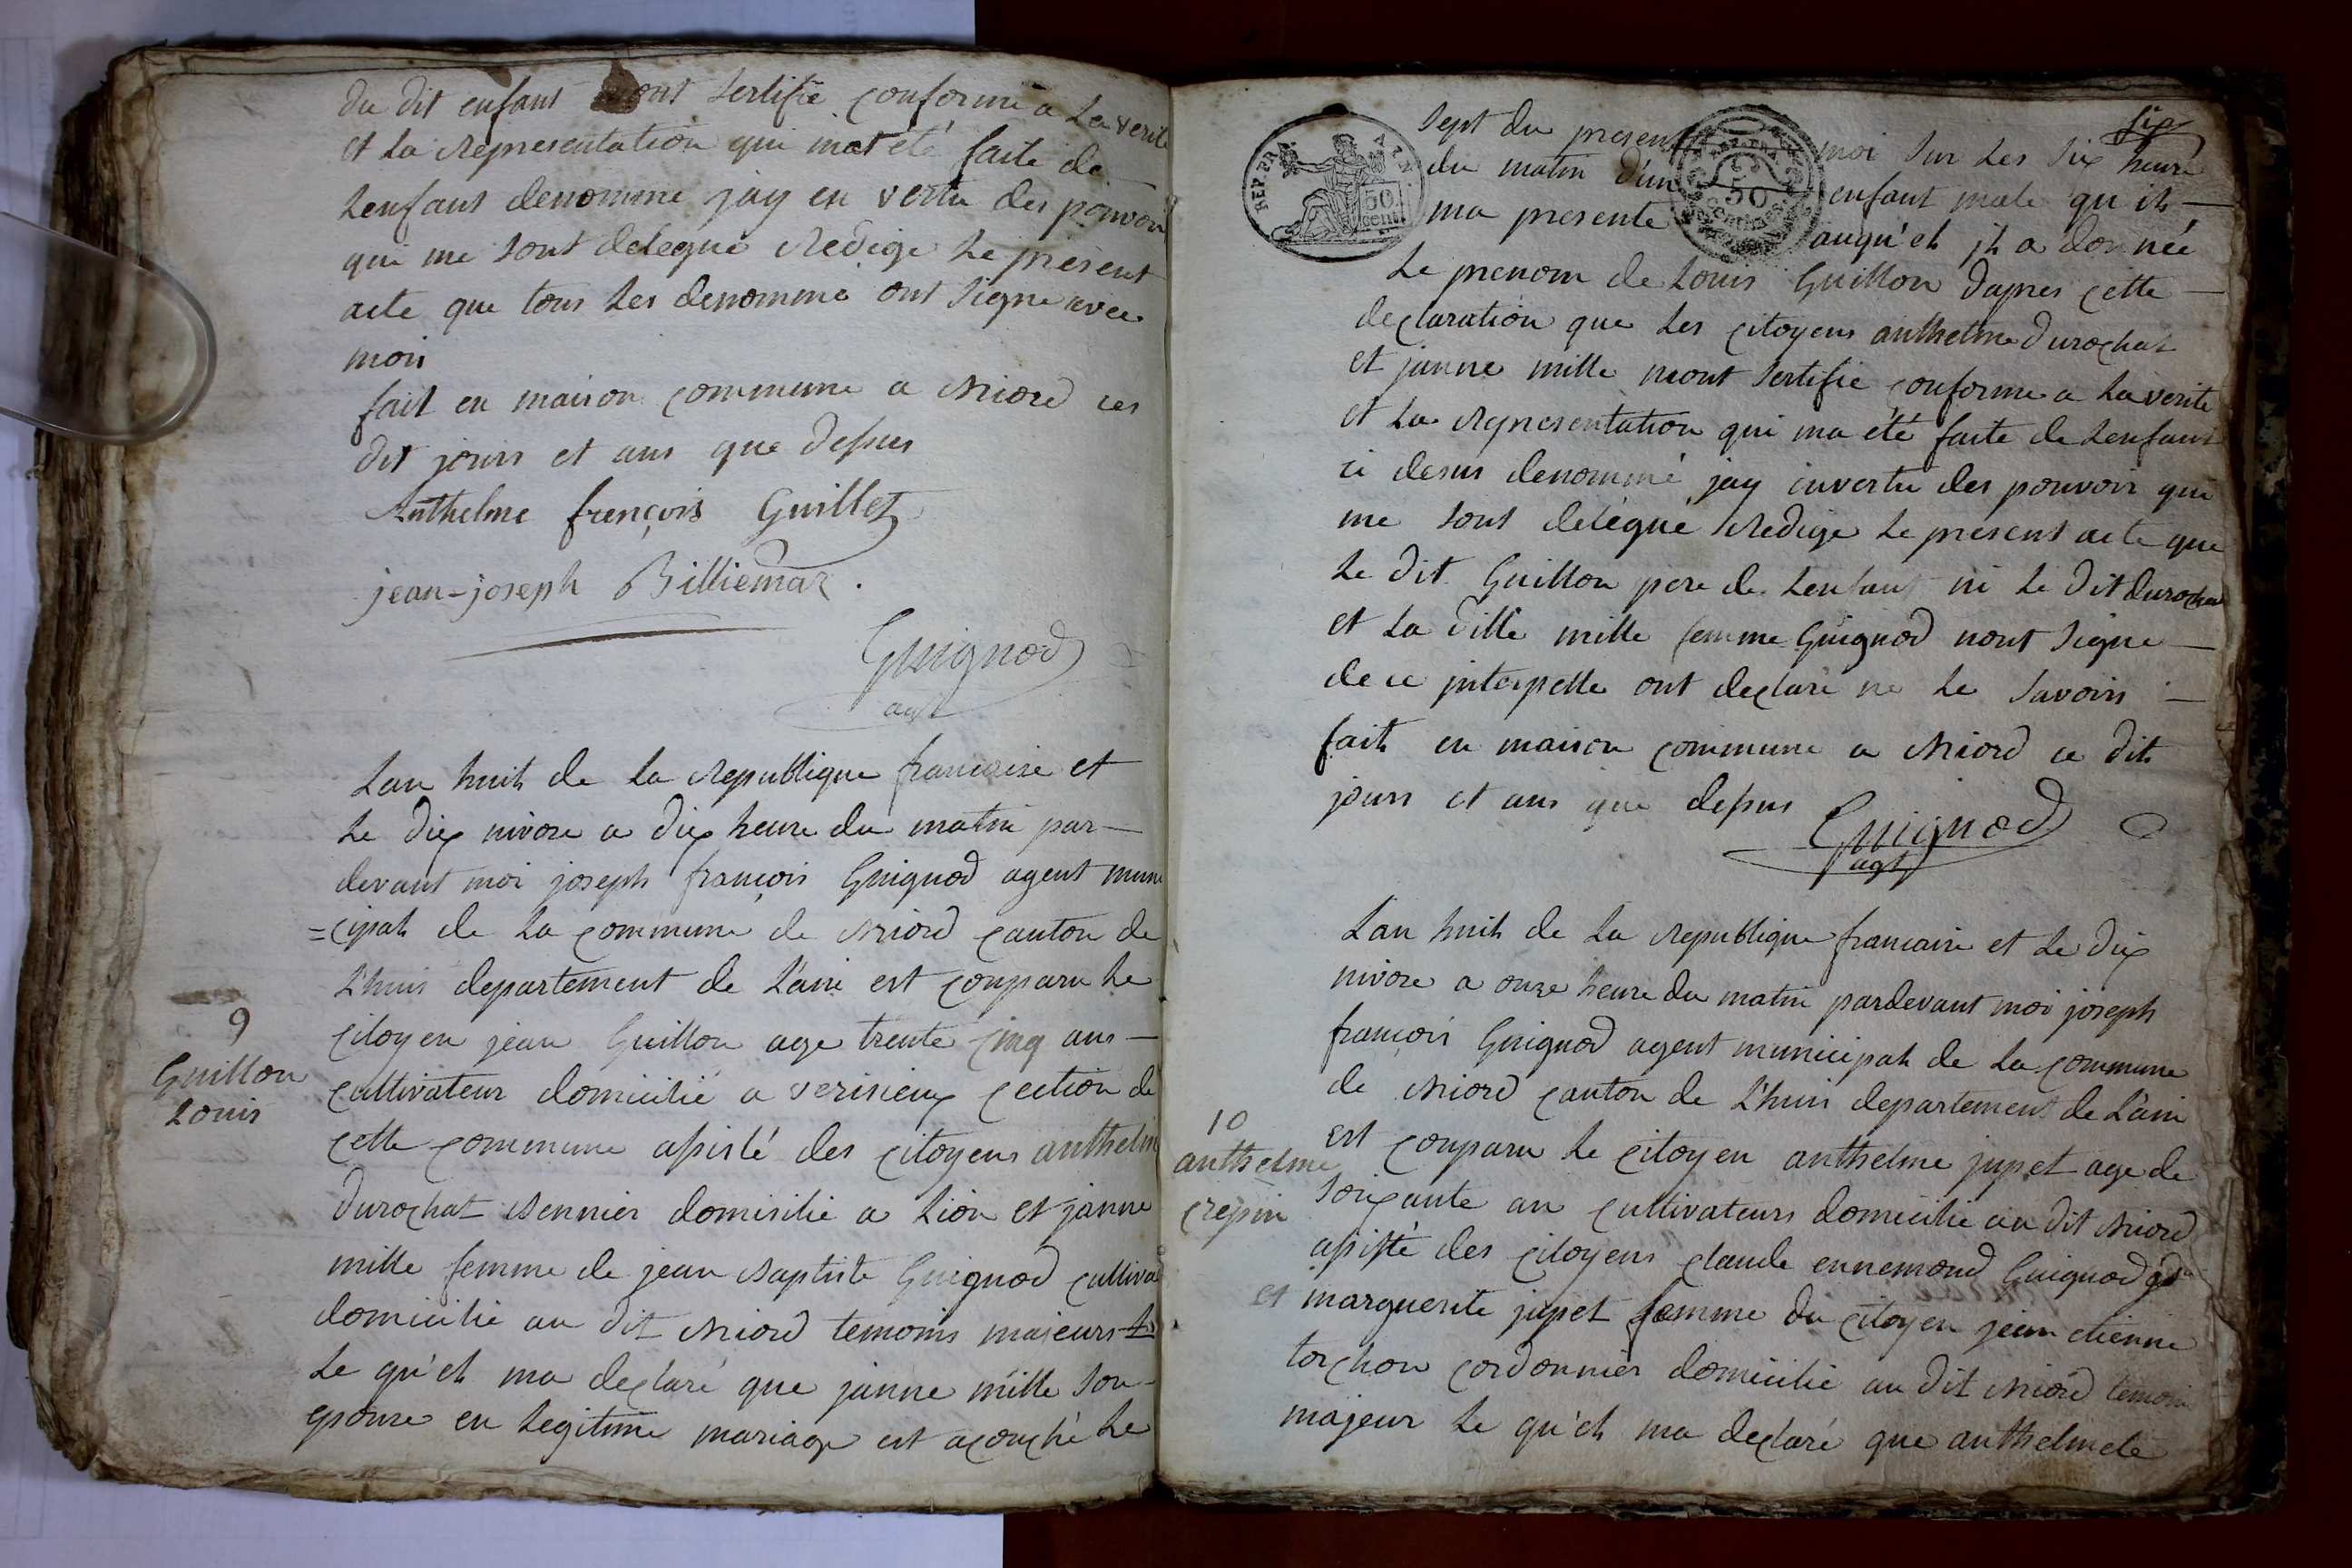 du dit enfant mont sertifie conforme a la verite
et la representation qui mat été faite de
lenfant denomme jay en vertu des pouvoir
qui me sont delegué redige le présent
acte que tous les denommé ont signe avec
moi
fait en maison commune a briord ces
dit jours et ans que dessus
Anthelme françois Guillet
jean-joseph Billiemaz.
Guignod
agt
Lan huit de la republique francaise et
le dix nivose a dix heure du matin par-
devant moi joseph françois Guignod agent muni
=cipal de la commune de briord canton de
L'huis departement de L'ain est comparu le
citoyen jean Guillon age trente cinq ans
9
Guillon
Louis
cultivateur domicilié a verisieux cection de
cette commune assisté des citoyens anthelme
durochat domisilie a Lion et janne
mille femme de jean baptiste Guignod cultiva
domicilie au dit briord temoins majeurs
le qu'el ma declaré que janne mille son
epouse en legitime mariage est acouché le
six
sept du present moi sur les six heure
du matin d'un enfant male qu'il
ma presenté auqu'el il a donnée
REP. FRA. 50 cent.
50
le prenom de Louis Guillon dapres cette
declaration que les citoyens anthelme durochat
et janne mille mont sertifie conforme a la verite
et la representation qui ma été faite de lenfant
ci desus denommé jay envertu des pouvoir qui
me sont delégué redige le présent acte que
le dit Guillon pere de lenfant ni le dit durochat
et la ditte mille femme Guignod nont signe
de ce interpelle ont declaré ne le savoir
fait en maison commune a briord ce dit
jours et ans que dessus
Guignod
agt
Lan huit de la republique francaise et le dix
nivose a onze heure du matin pardevant moi joseph
françois Guignod agent municipal de la commune
de briord canton de L'huis departement de L'ain
10
anthelme
crepin
est comparu le citoyen anthelme jupet age de
soixante an cultivateurs domicilie au dit briord
assisté des citoyens claude ennemond Guignod
et marguerite jupet femme du citoyen jean etienne
torchon cordonnier domicilié au dit briord temoin
majeur le qu'el ma declaré que anthelmete